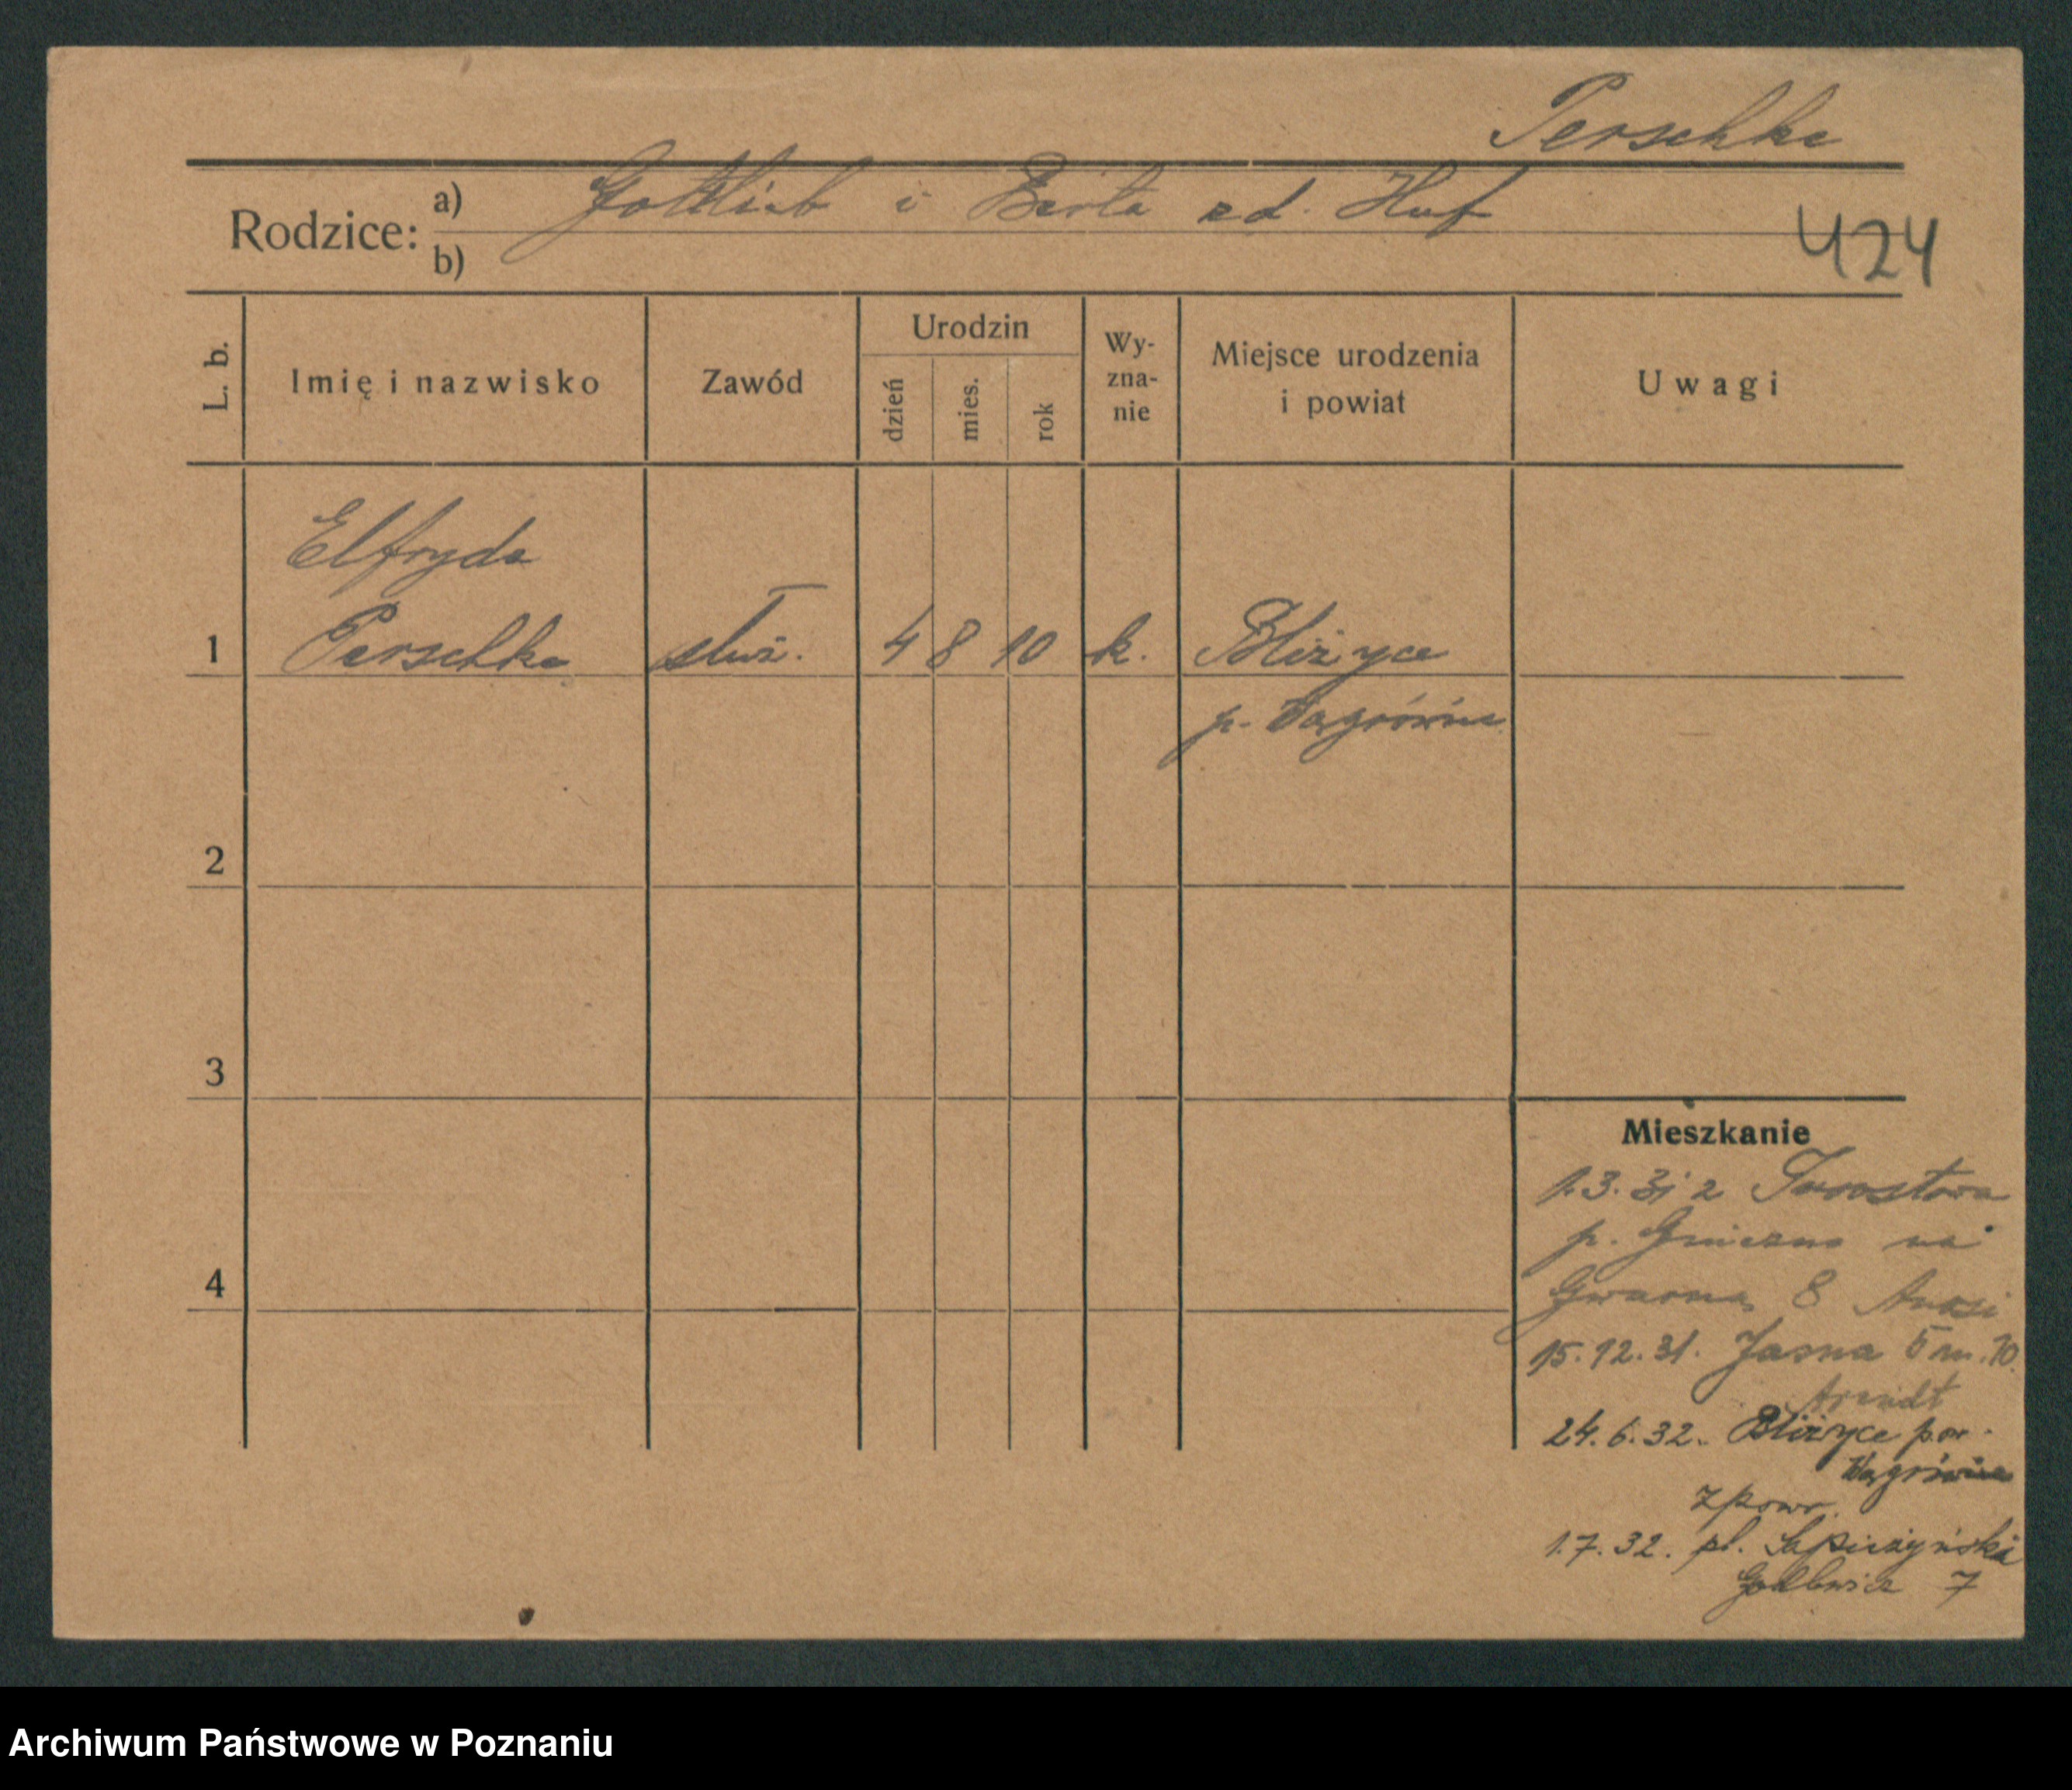 Perschke
Rodzice: a) Gottlieb i Berta zd. Huf
b)
424
L. b.
Imię i nazwisko
Zawód
Urodzin
dzień
mies.
rok
Wy-
zna-
nie
Miejsce urodzenia
i powiat
Uwagi
Elfryda
1 Perschke służ. 4 8 10 k. Bliżyce
p. Wągrówiec
2
3
4
Mieszkanie
1.3.31 z Turostowa
p. Gniezno na
Gwarna 8
15.12.31. Jasna 5 m. 10.
Arendt
24.6.32. Bliżyce pow.
Wągrówiec
z powr.
1.7.32. pl. Sapieżyński
7
Archiwum Państwowe w Poznaniu